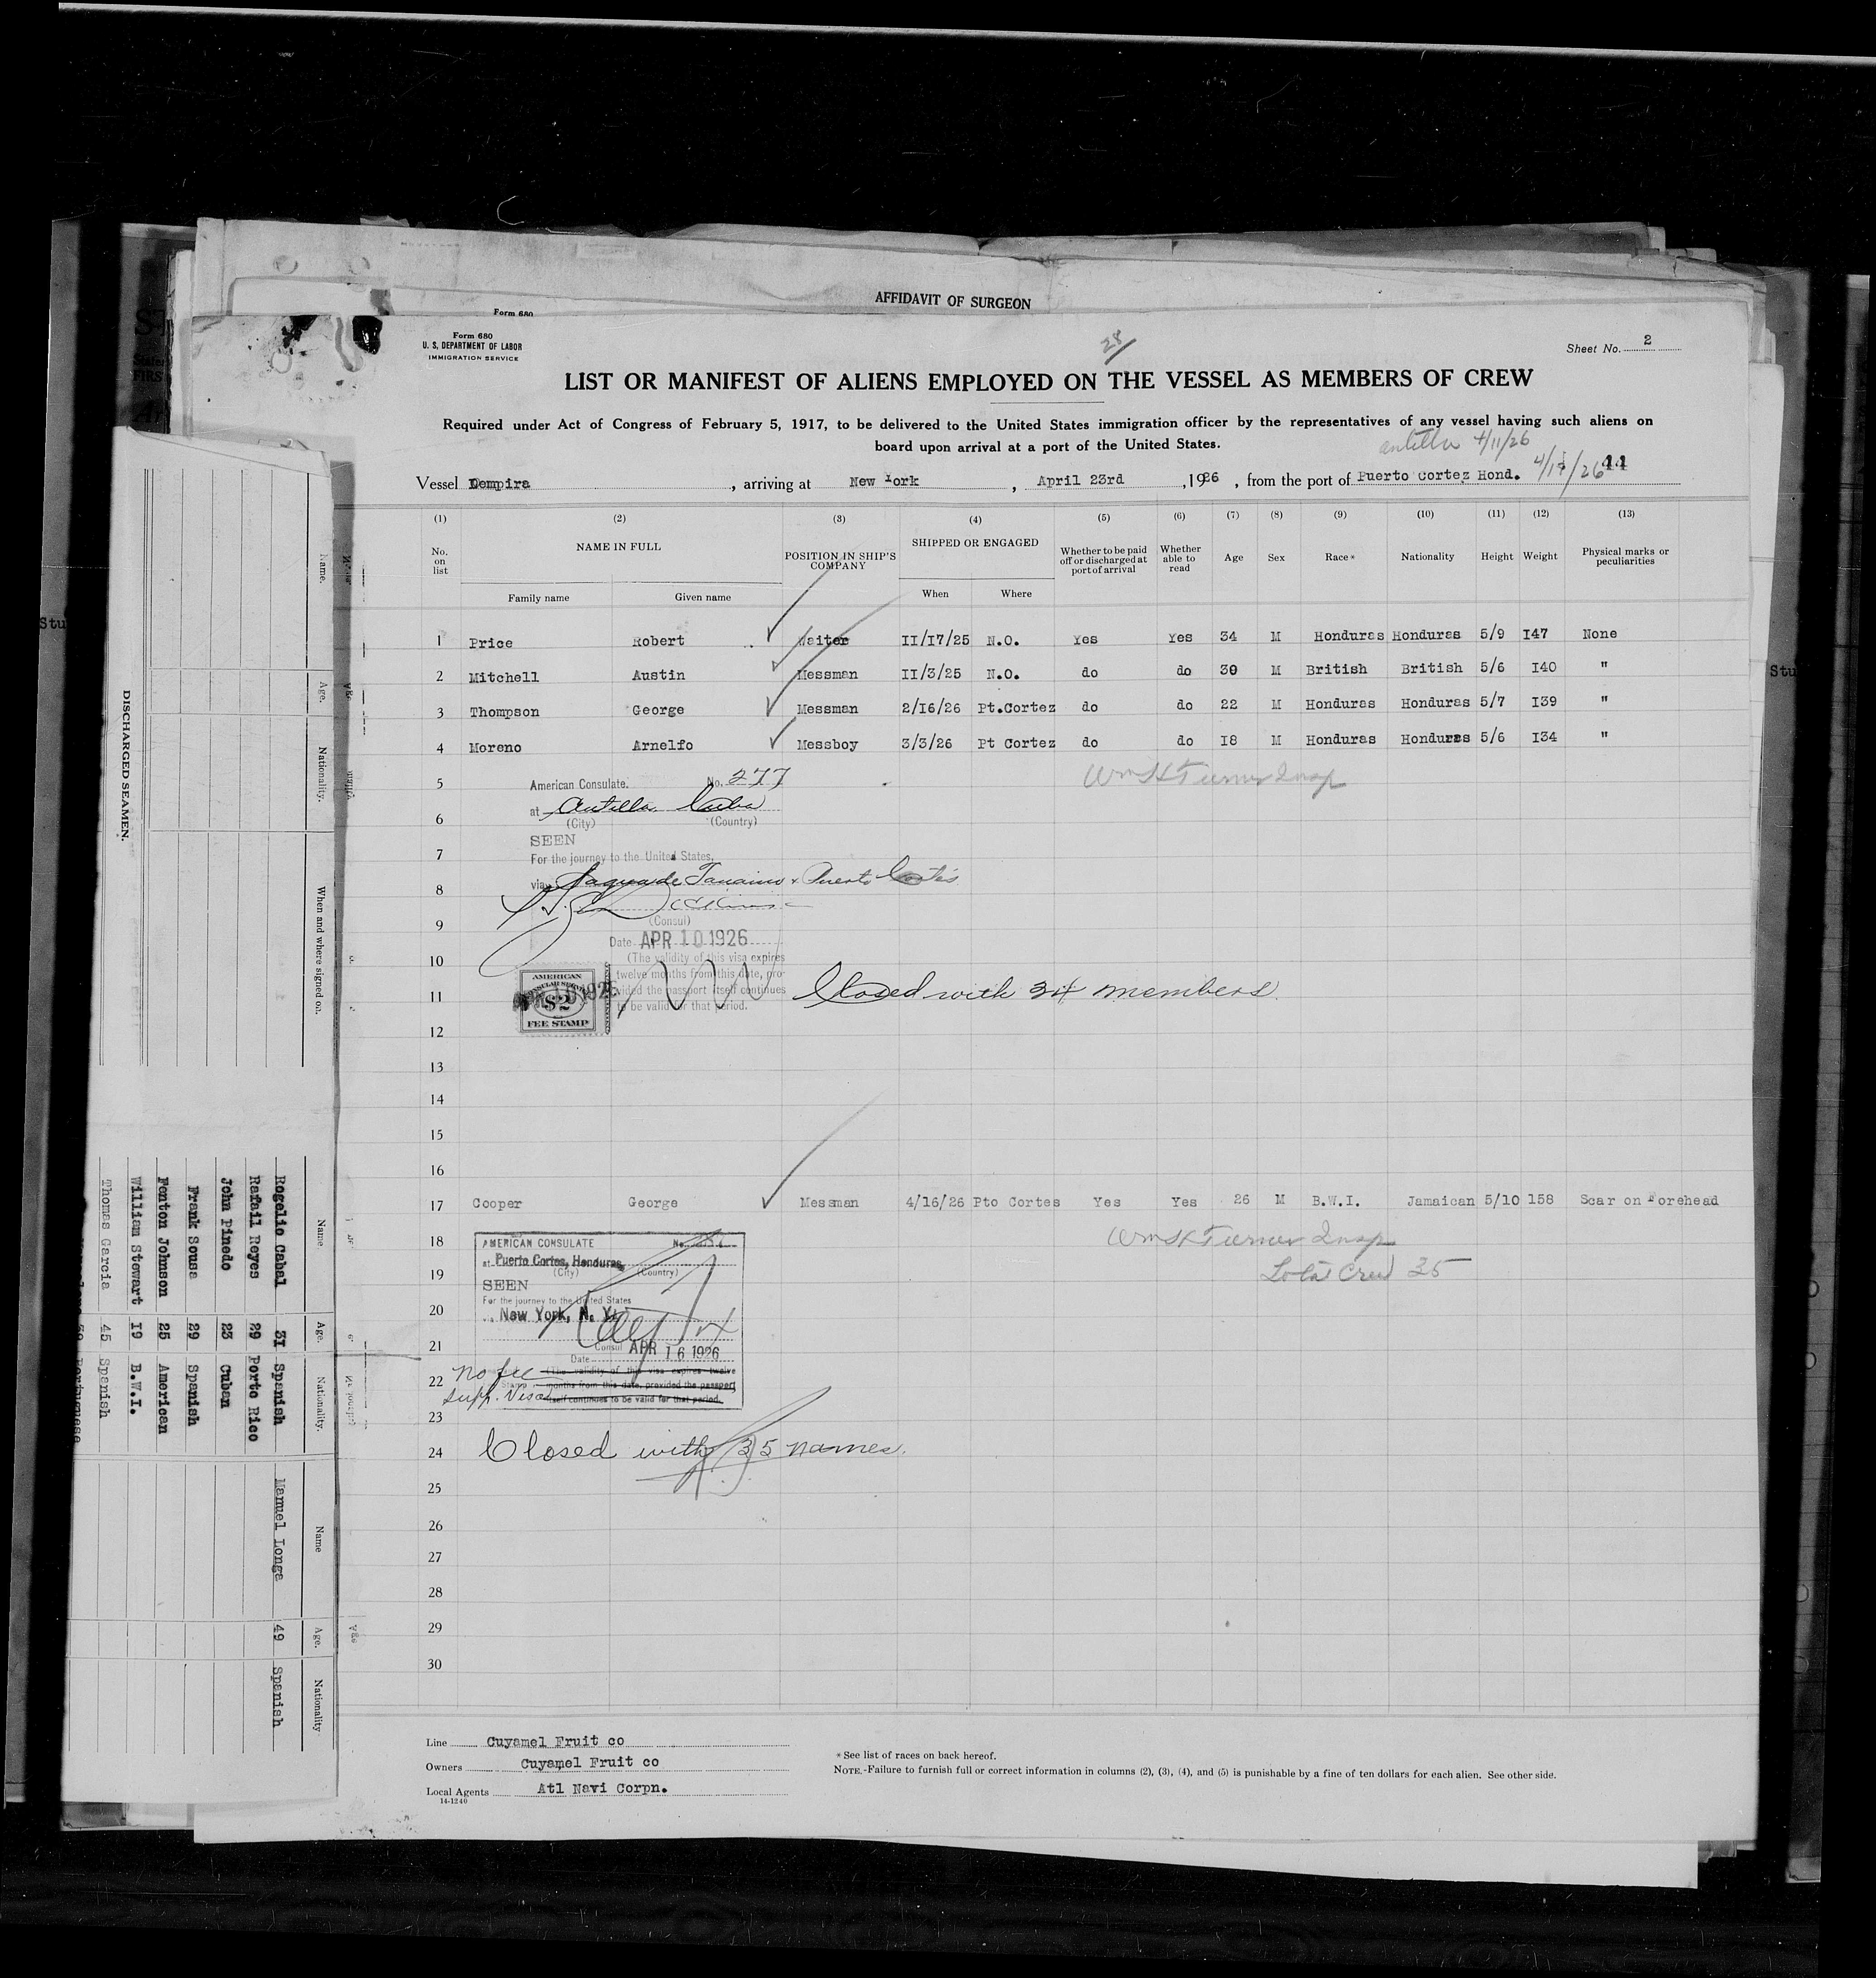 AFFIDAVIT OF SURGEON
Form 680
Form 680
U. S. DEPARTMENT OF LABOR
IMMIGRATION SERVICE
28
Sheet No. 2
LIST OR MANIFEST OF ALIENS EMPLOYED ON THE VESSEL AS MEMBERS OF CREW
Required under Act of Congress of February 5, 1917, to be delivered to the United States immigration officer by the representatives of any vessel having such aliens on
board upon arrival at a port of the United States.
antilla 4/11/26
Vessel Dempira, arriving at New York, April 23rd, 1926, from the port of Puerto Cortez Hond. 11
(1) (2) (3) (4) (5) (6) (7) (8) (9) (10) (11) (12) (13)
No. on list NAME IN FULL POSITION IN SHIP'S COMPANY SHIPPED OR ENGAGED Whether to be paid off or discharged at port of arrival Whether able to read Age Sex Race* Nationality Height Weight Physical marks or peculiarities
Family name Given name When Where
1 Price Robert Waiter 11/17/25 N.O. Yes Yes 34 M Honduras Honduras 5/9 147 None
2 Mitchell Austin Messman 11/3/25 N.O. do do 30 M British British 5/6 140 "
3 Thompson George Messman 2/16/26 Pt.Cortez do do 22 M Honduras Honduras 5/7 139 "
4 Moreno Arnelfo Messboy 3/3/26 Pt Cortez do do 18 M Honduras Honduras 5/6 134 "
5 American Consulate. No. 277 Wm H Turner Insp
6 at Antilla, Cuba
(City) (Country)
SEEN
7 For the journey to the United States,
8 via Sagua de Tanamo & Puerto Cortés
9 (Consul)
Date APR 10 1926
10 (The validity of this visa expires
twelve months from this date, pro-
11 vided the passport itself continues
to be valid for that period.
AMERICAN
CONSULAR SERVICE
$2
FEE STAMP
Closed with 34 members.
12
13
14
15
16
17 Cooper George Messman 4/16/26 Pto Cortes Yes Yes 26 M B.W.I. Jamaican 5/10 158 Scar on Forehead
18 AMERICAN CONSULATE No. Wm H Turner Insp
at Puerto Cortes, Honduras,
19 (City) (Country) Total Crew 35
SEEN
20 For the journey to the United States
New York, N. Y.
21 Consul APR 16 1926
Date
22 No fee (The validity of this visa expires twelve
Stamp months from this date, provided the passport
Supp. Visa itself continues to be valid for that period.
23
24 Closed with 35 names.
25
26
27
28
29
30
Line Cuyamel Fruit co
Owners Cuyamel Fruit co
Local Agents Atl Navi Corpn.
14-1240
*See list of races on back hereof.
NOTE.-Failure to furnish full or correct information in columns (2), (3), (4), and (5) is punishable by a fine of ten dollars for each alien. See other side.
DISCHARGED SEAMEN.
Name. Age. Nationality. When and where signed on.
Name Age. Nationality. Name Age. Nationality
Rogelio Cabal 31 Spanish Manuel Longa 49 Spanish
Rafail Reyes 29 Porto Rico
John Pinedo 23 Cuban
Frank Sousa 29 Spanish
Fenton Johnson 25 American
William Stewart 19 B.W.I.
Thomas Garcia 45 Spanish
Portuguese
Stu
Stu